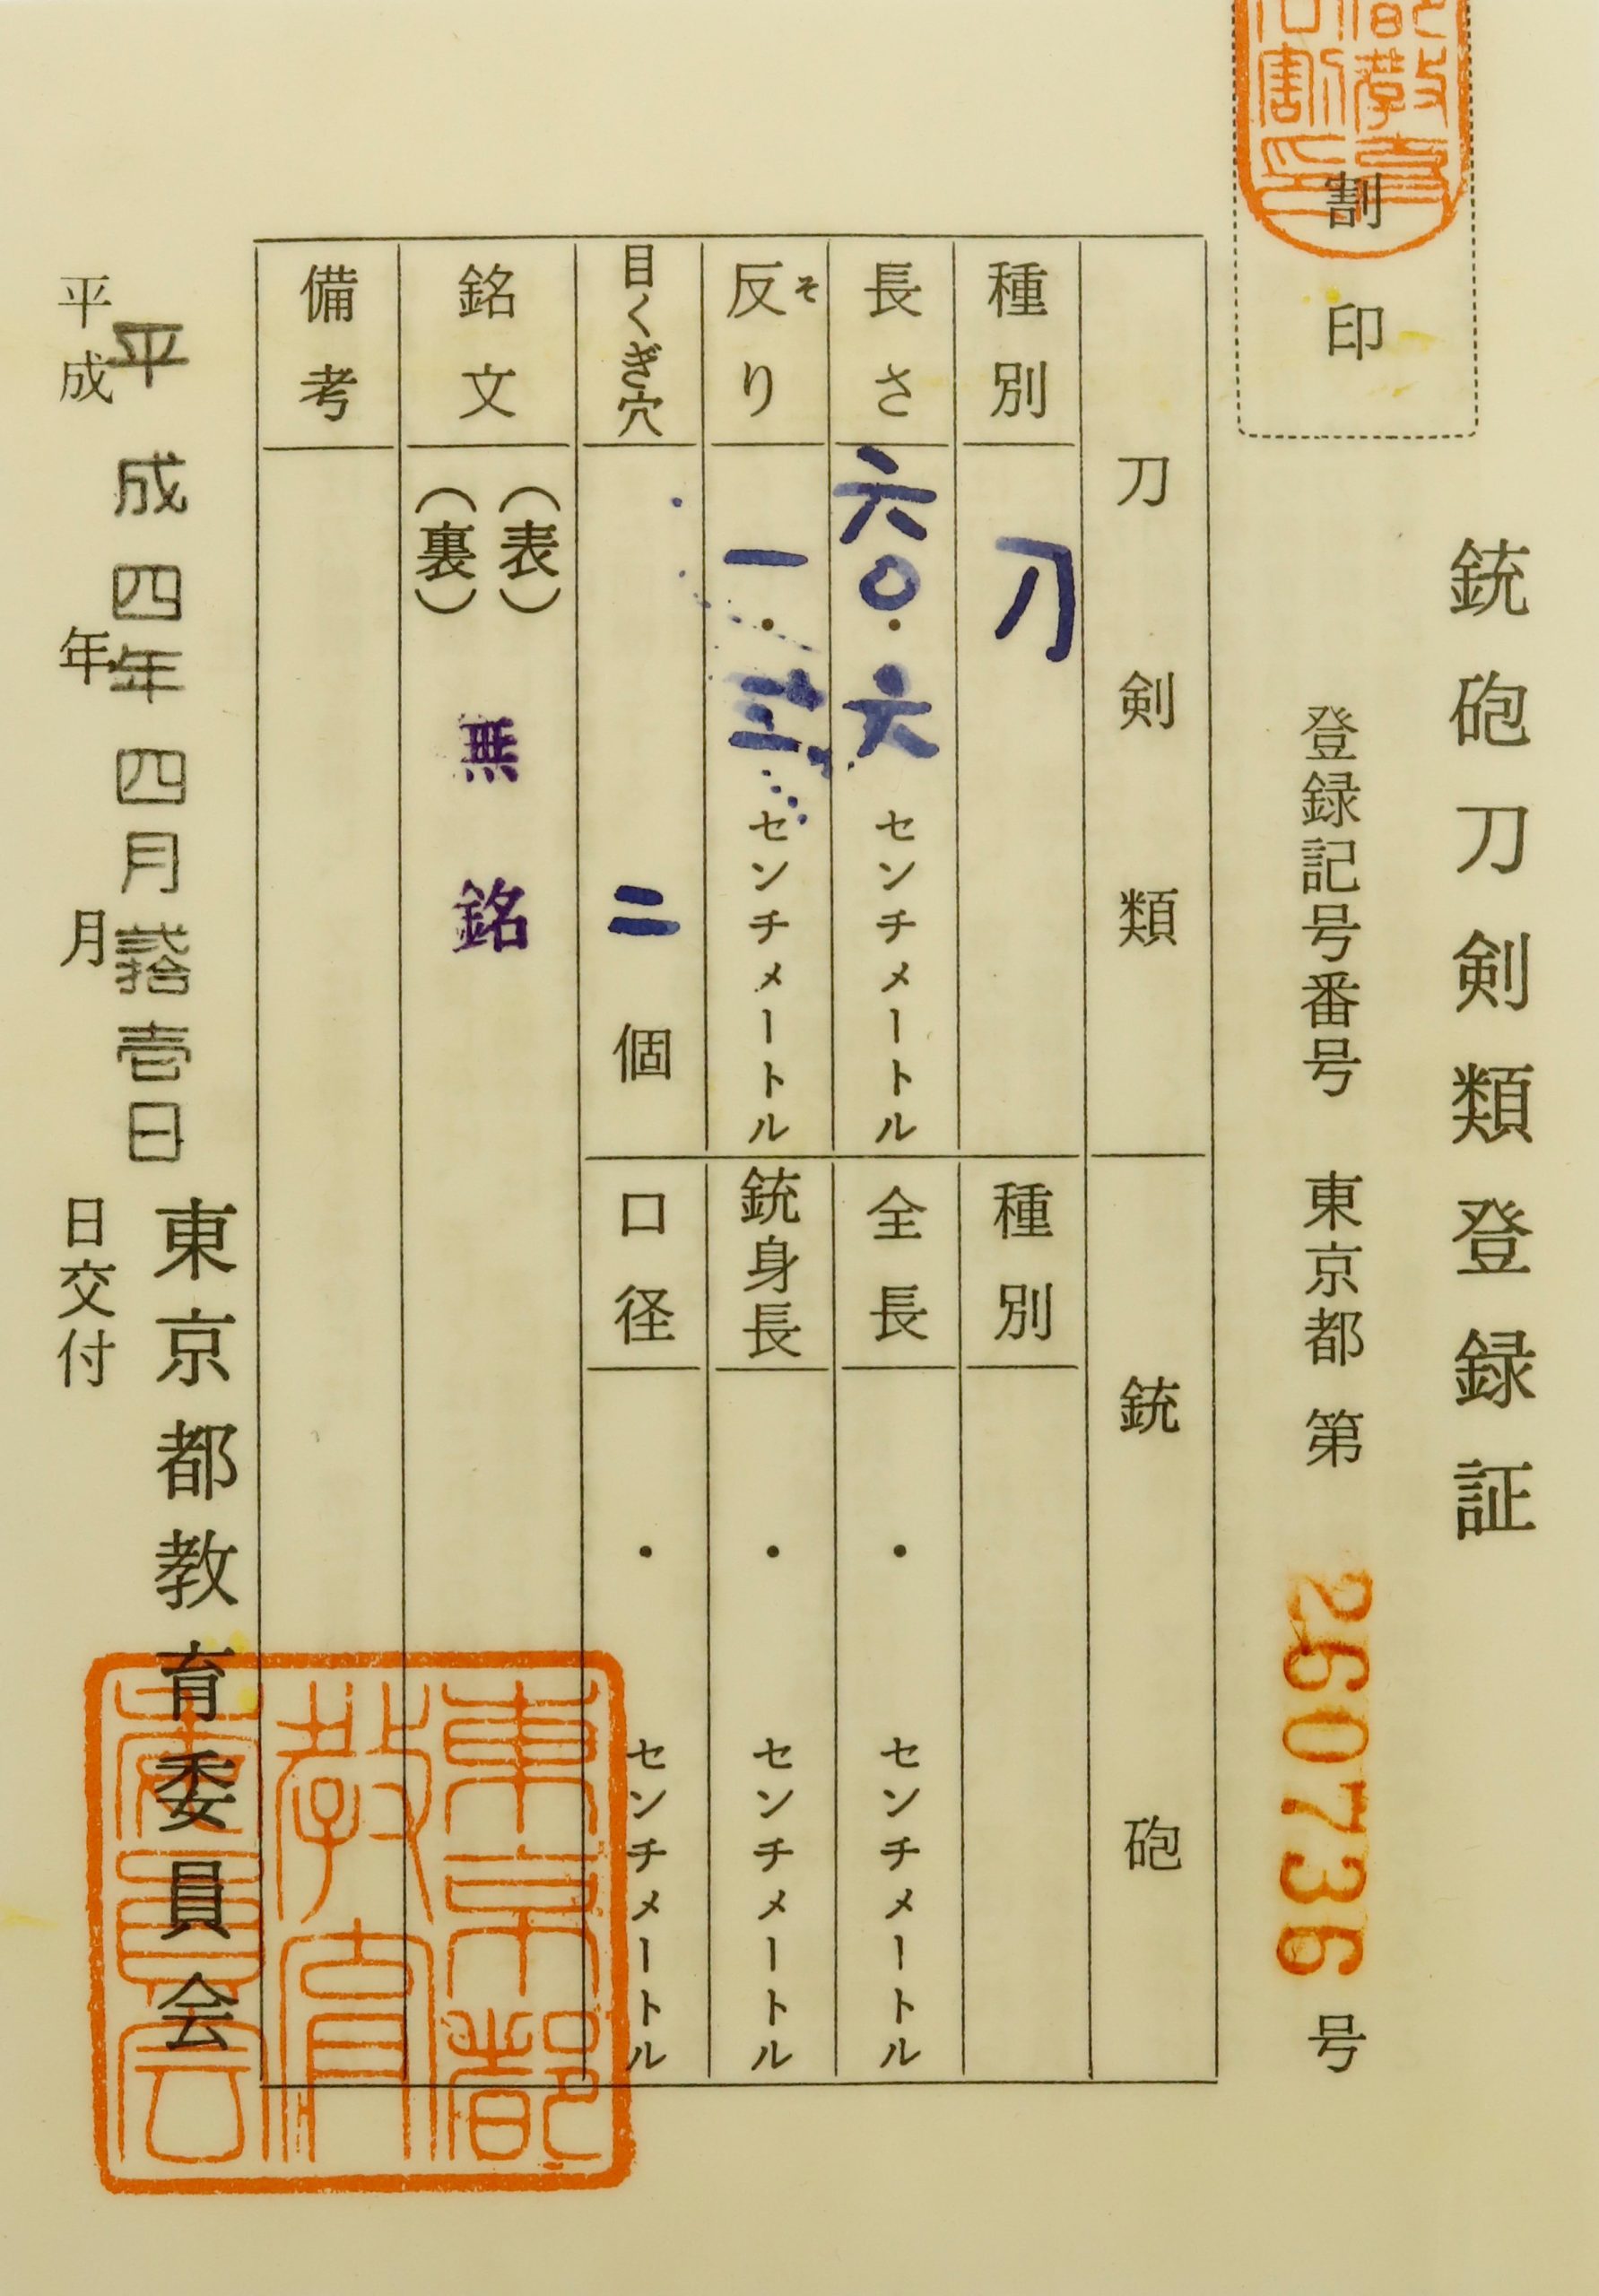 銃砲刀剣類登録証
割印
登録記号番号 東京都 第 260736 号
刀剣類
種別 刀
長さ 六〇・六 センチメートル
反り そ 一・三 センチメートル
目くぎ穴 二 個
銘文 (表) (裏) 無銘
備考
銃砲
種別
全長 ・ センチメートル
銃身長 ・ センチメートル
口径 ・ センチメートル
東京都教育委員会
平成四年四月弐拾壱日
平成 年 月 日交付
東京都教育委員会